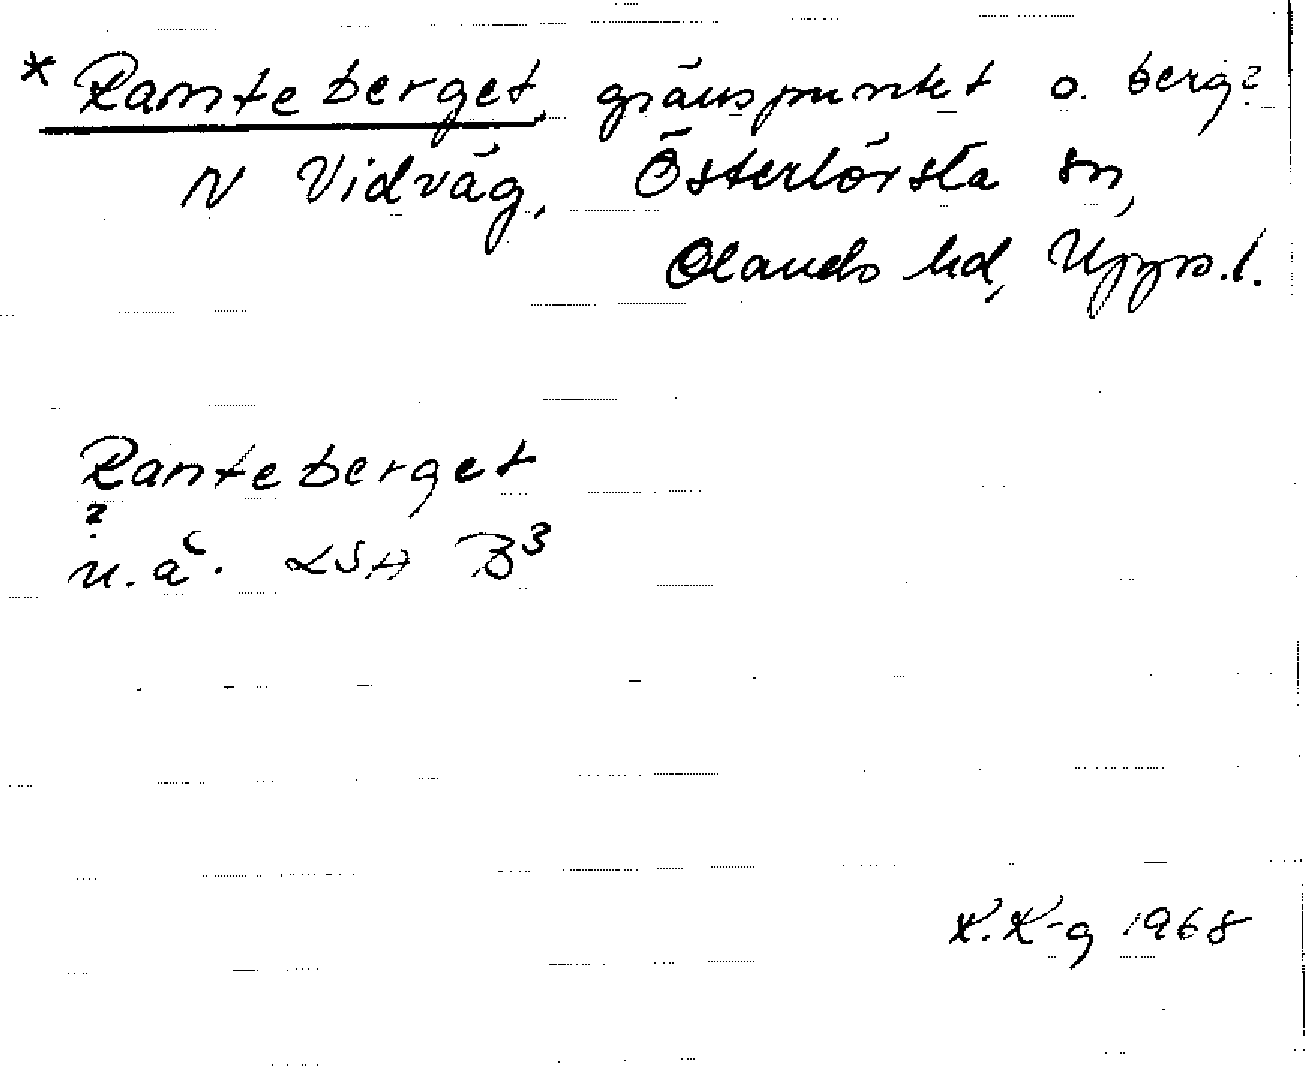 * Ranteberget, gränspunkt o. berg?
N Vidväg, Österlövsta sn,
Olands hd, Upps.l.
Ranteberget
?
u.å. LSA B3
K.K-g 1968